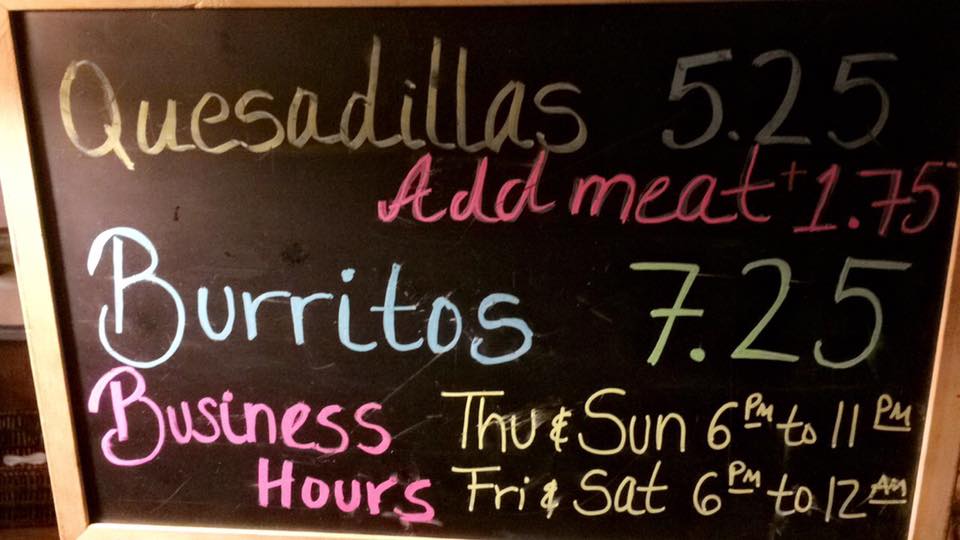 Quesadillas 5.25
Add meat +1.75
Burritos 7.25
Business Thu & Sun 6 PM to 11 PM
Hours Fri & Sat 6 PM to 12 AM